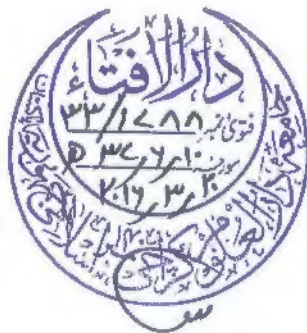 دارالافتاء
فتویٰ نمبر ۳۳/۱۷۸۸
مورخہ ۳۷/۶/۱۰ ھ
۲۰۱۶/۳/۲۰
جامعہ دارالعلوم کراچی